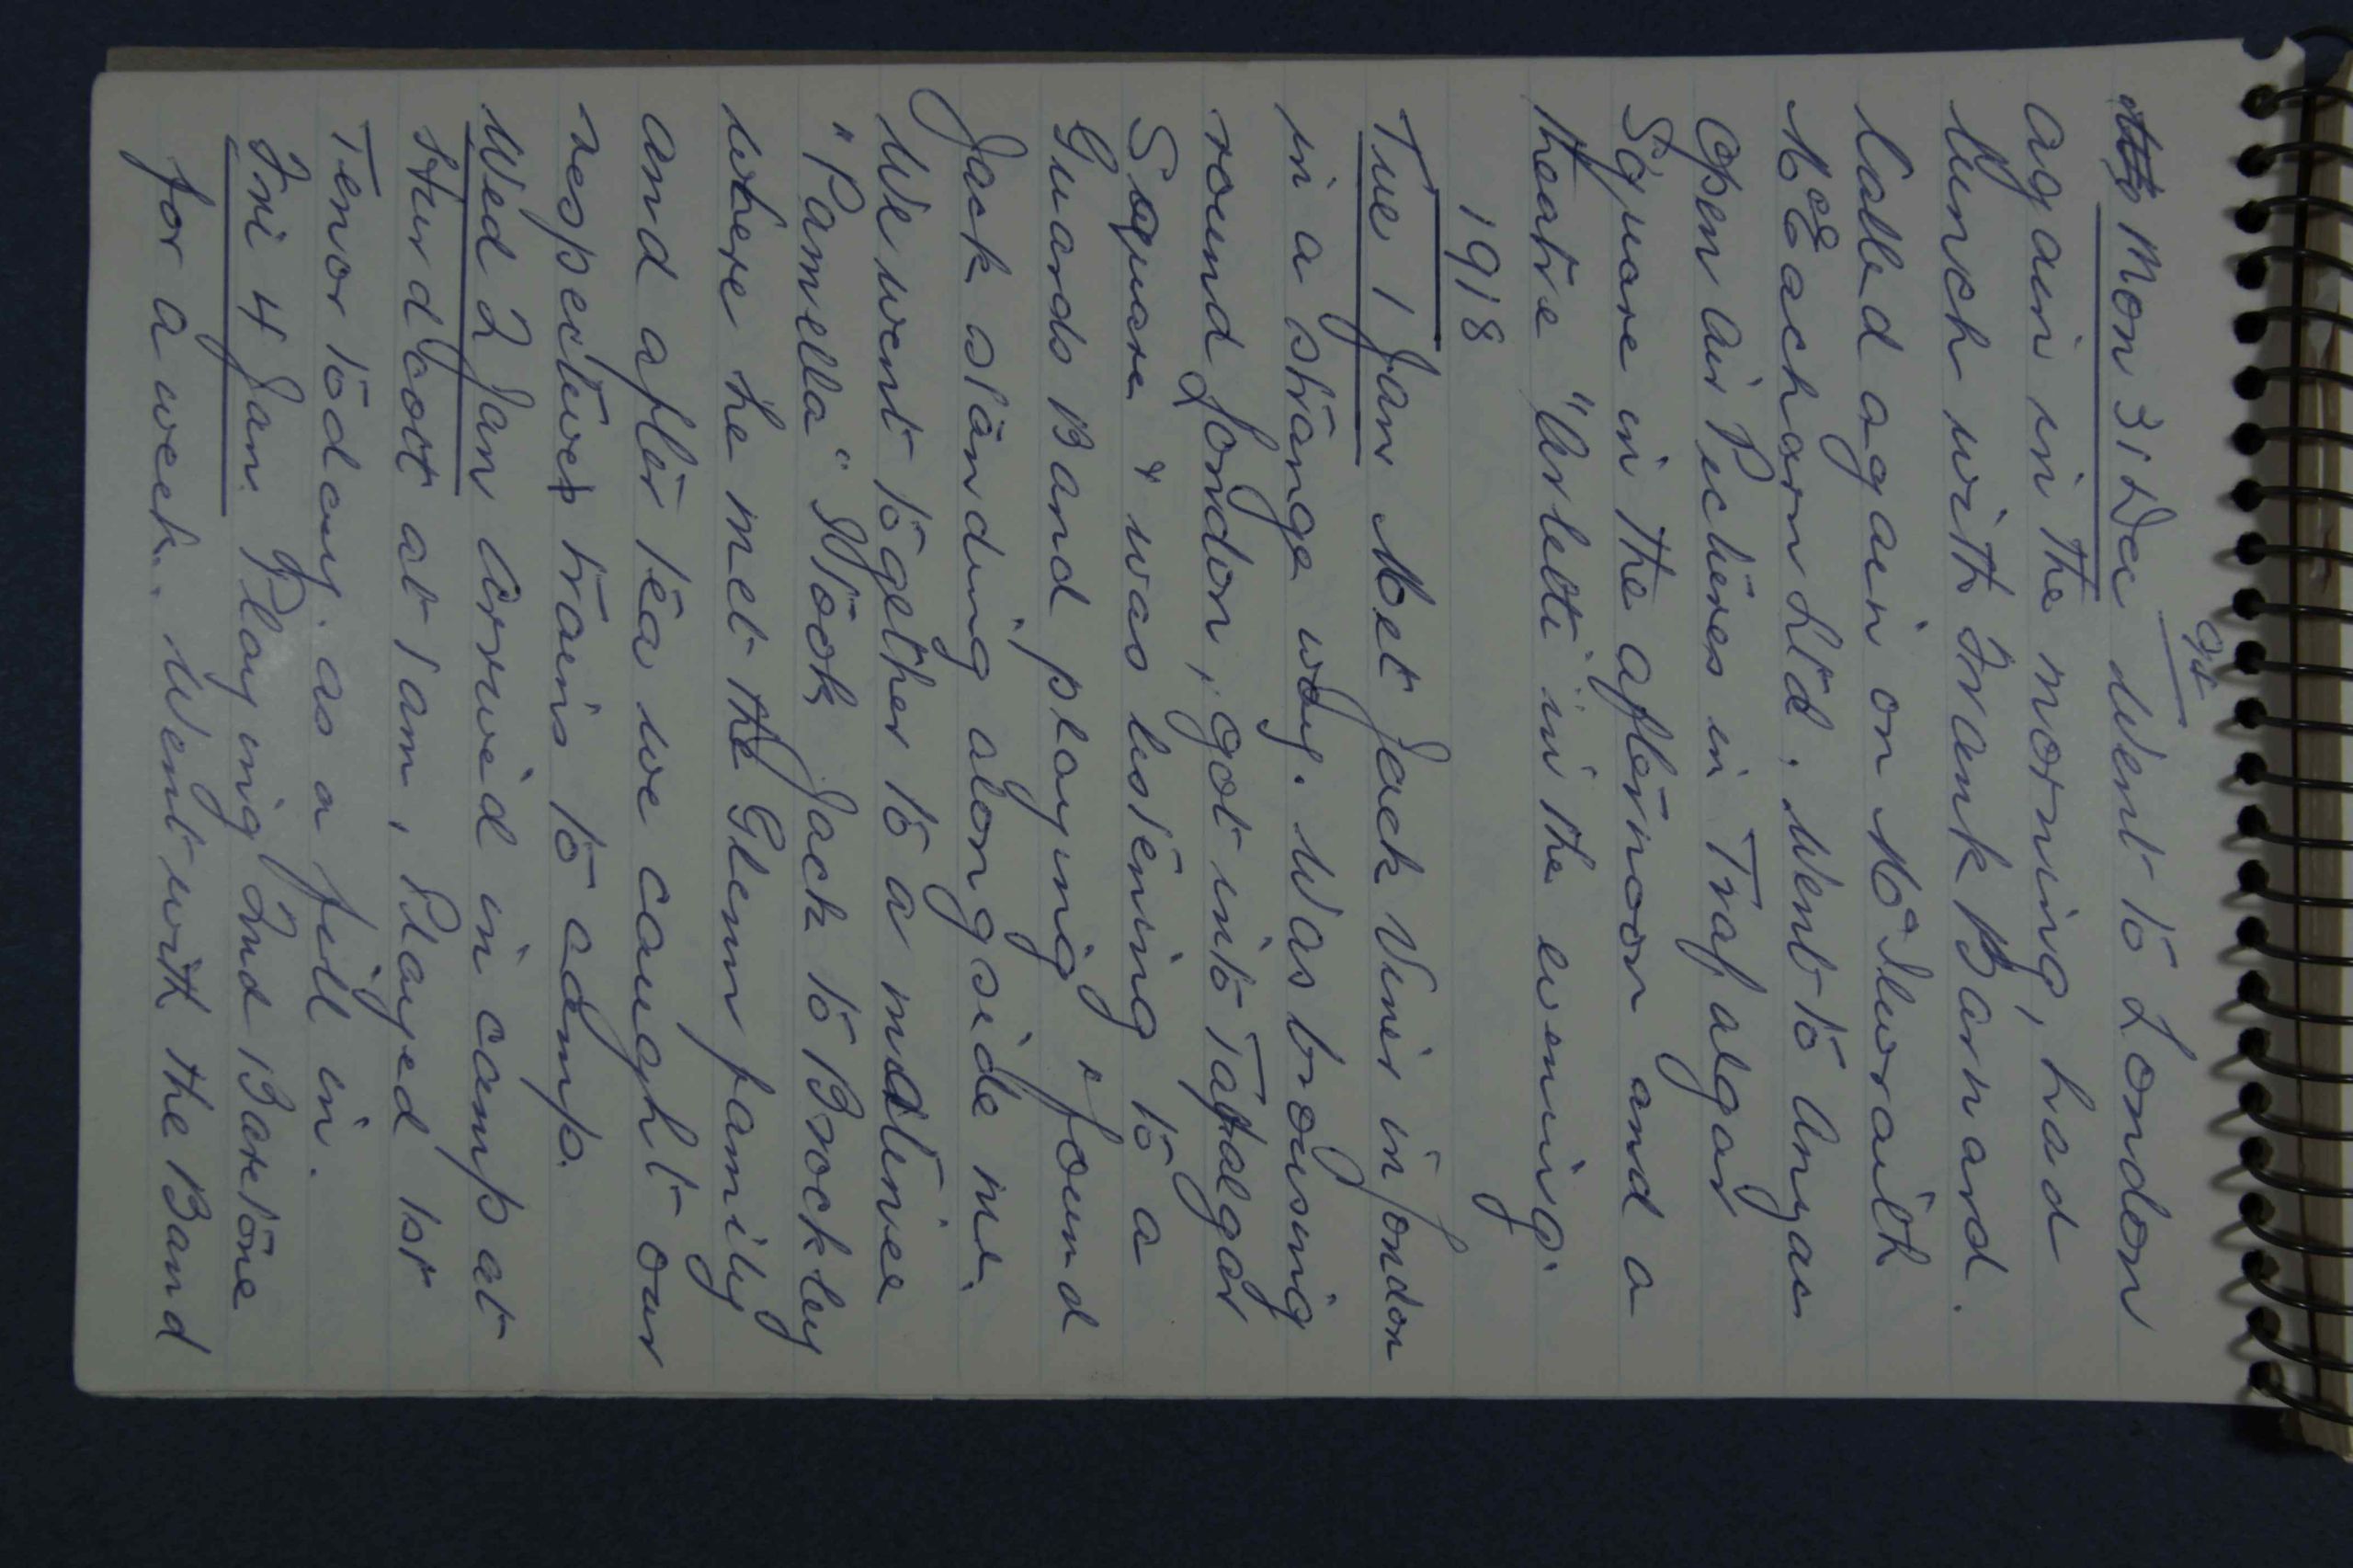 91
Mon 31 Dec Went to London
again in the morning, had
lunch with Frank Barnard.
Called again on McIlwraith
McEacharn Ltd. Went to Anzac
Open Air Pictures in Trafalgar
Square in the afternoon and a
theatre "Arlette" in the evening.
1918
Tue 1 Jan Met Jack Viner in London
in a strange way. Was browsing
round London, got into Tafalgar
Square & was listening to a
Guards Band playing & found
Jack standing alongside me.
We went together to a matinee
"Pamella" Took Jack to Brockley
where he met the Glenn family
and after tea we caught our
respective trains to camp.
Wed 2 Jan Arrived in camp at
Hurdcott at 1 am, Played 1st
Tenor today as a fill in.
Fri 4 Jan Playing 2nd Baritone
for a week. Went with the Band